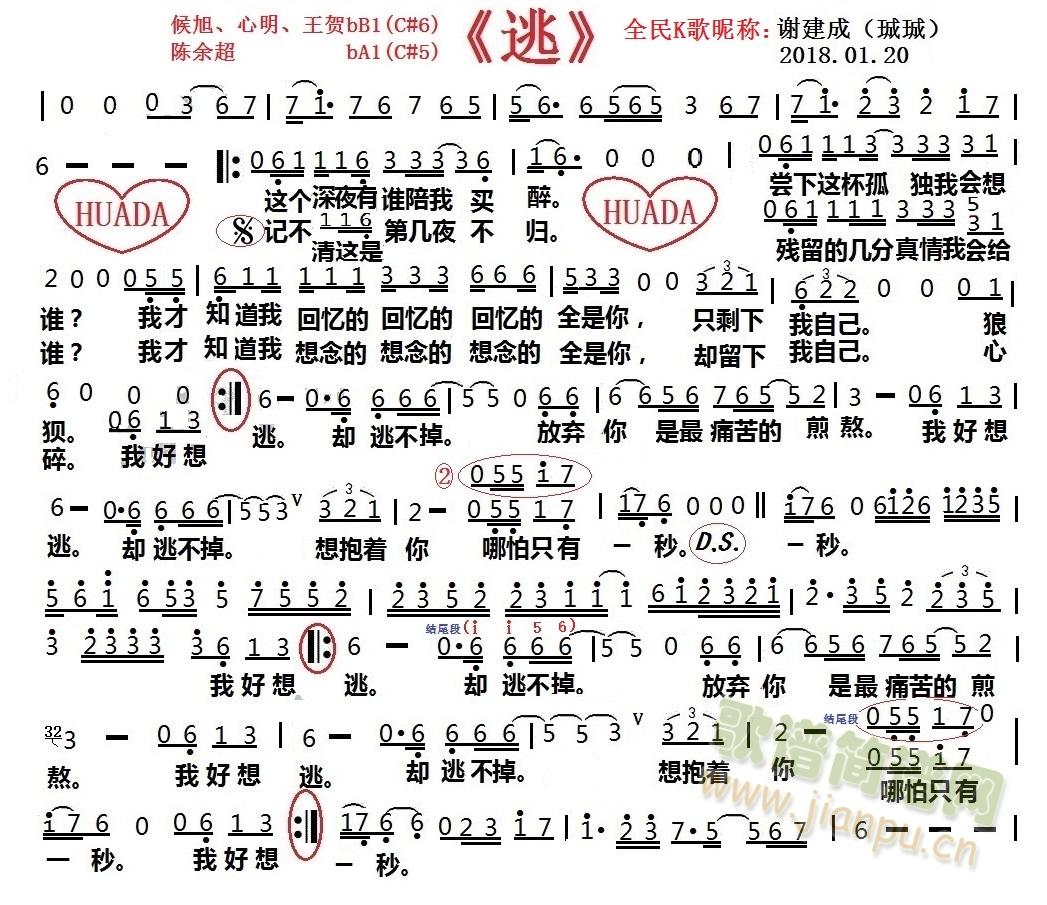 候旭、心明、王贺bB1(C#6)
陈余超 bA1(C#5)
《逃》
全民K歌昵称：谢建成（珹珹）
2018.01.20
| 0 0 0 3 6 7 | 7 1· 7 6 7 6 5 | 5 6· 6 5 6 5 3 6 7 | 7 1· 2 3 2 1 7 |
6 – – – |: 0 6 1 1 1 6 3 3 3 3 6 | 1 6· 0 0 0 | 0 6 1 1 1 3 3 3 3 3 1 |
HUADA 这个 深夜有 谁陪我 买 醉。 HUADA 尝下这杯孤 独我会想
1 1 6 0 6 1 1 1 1 3 3 3 5 3 1
记不 清这是 第几夜 不 归。 残留的几分真情我会给
2 0 0 0 5 5 | 6 1 1 1 1 1 3 3 3 6 6 6 | 5 3 3 0 0 3 2 1 | 6 2 2 0 0 0 1 |
谁？ 我才 知道我 回忆的 回忆的 回忆的 全是你， 只剩下 我自己。 狼
谁？ 我才 知道我 想念的 想念的 想念的 全是你， 却留下 我自己。 心
6 0 0 0 :| 6 – 0·6 6 6 6 | 5 5 0 6 6 | 6 5 6 7 6 5 5 2 | 3 – 0 6 1 3 |
0 6 1 3
狈。 逃。 却 逃不掉。 放弃 你 是最 痛苦的 煎熬。 我好想
碎。 我好想
② 0 5 5 1 7
6 – 0·6 6 6 6 | 5 5 3 V 3 2 1 | 2 – 0 5 5 1 7 | 1 7 6 0 0 0 || 1 7 6 0 6 1 2 1 2 3 5 |
逃。 却 逃不掉。 想抱着 你 哪怕只有 一 秒。 D.S. 一 秒。
5 6 1 6 5 3 5 7 5 5 2 | 2 3 5 2 2 3 1 1 1 | 6 1 2 3 2 1 2·3 5 2 3 5 |
3 2 3 3 3 3 6 1 3 |: 6 – 0·6 6 6 6 | 5 5 0 6 6 | 6 5 6 7 6 5 5 2 |
结尾段(i i 5 6)
我好想 逃。 却 逃不掉。 放弃你 是最 痛苦的 煎
结尾段 0 5 5 1 7 0
32 3 – 0 6 1 3 | 6 – 0·6 6 6 6 | 5 5 3 V 3 2 1 | 2 – 0 5 5 1 7 |
熬。 我好想 逃。 却 逃不掉。 想抱着 你 哪怕只有
1 7 6 0 0 6 1 3 :| 1 7 6 6 0 2 3 1 7 | 1· 2 3 7·5 5 6 7 | 6 – – |
一 秒。 我好想 一 秒。
歌谱简谱网
www.jianpu.cn